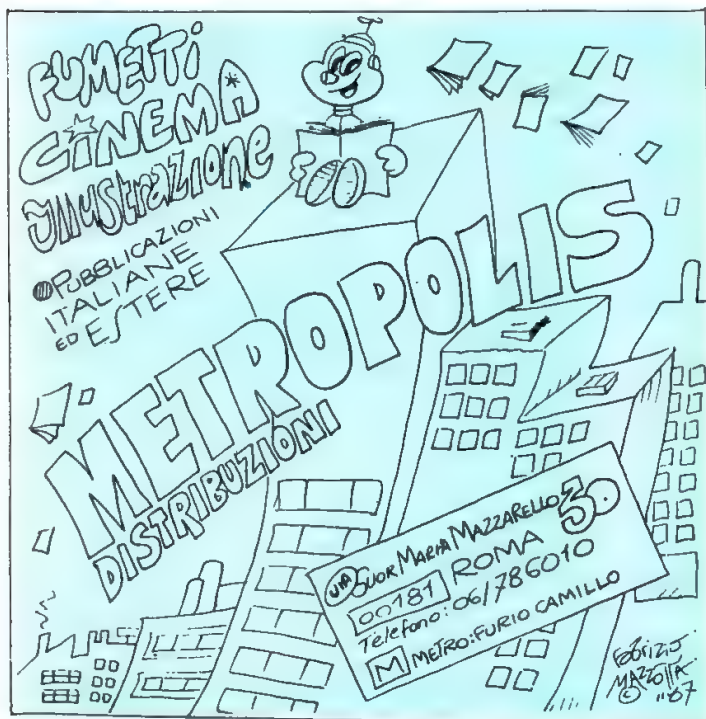 FUMETTI
CINEMA
illustrazione
PUBBLICAZIONI
ITALIANE
ED ESTERE
METROPOLIS
DISTRIBUZIONI
VIA SUOR MARIA MAZZARELLO 30
00181 ROMA
Telefono: 06/786010
M METRO: FURIO CAMILLO
Fabrizio
MAZZOTTA
© "87